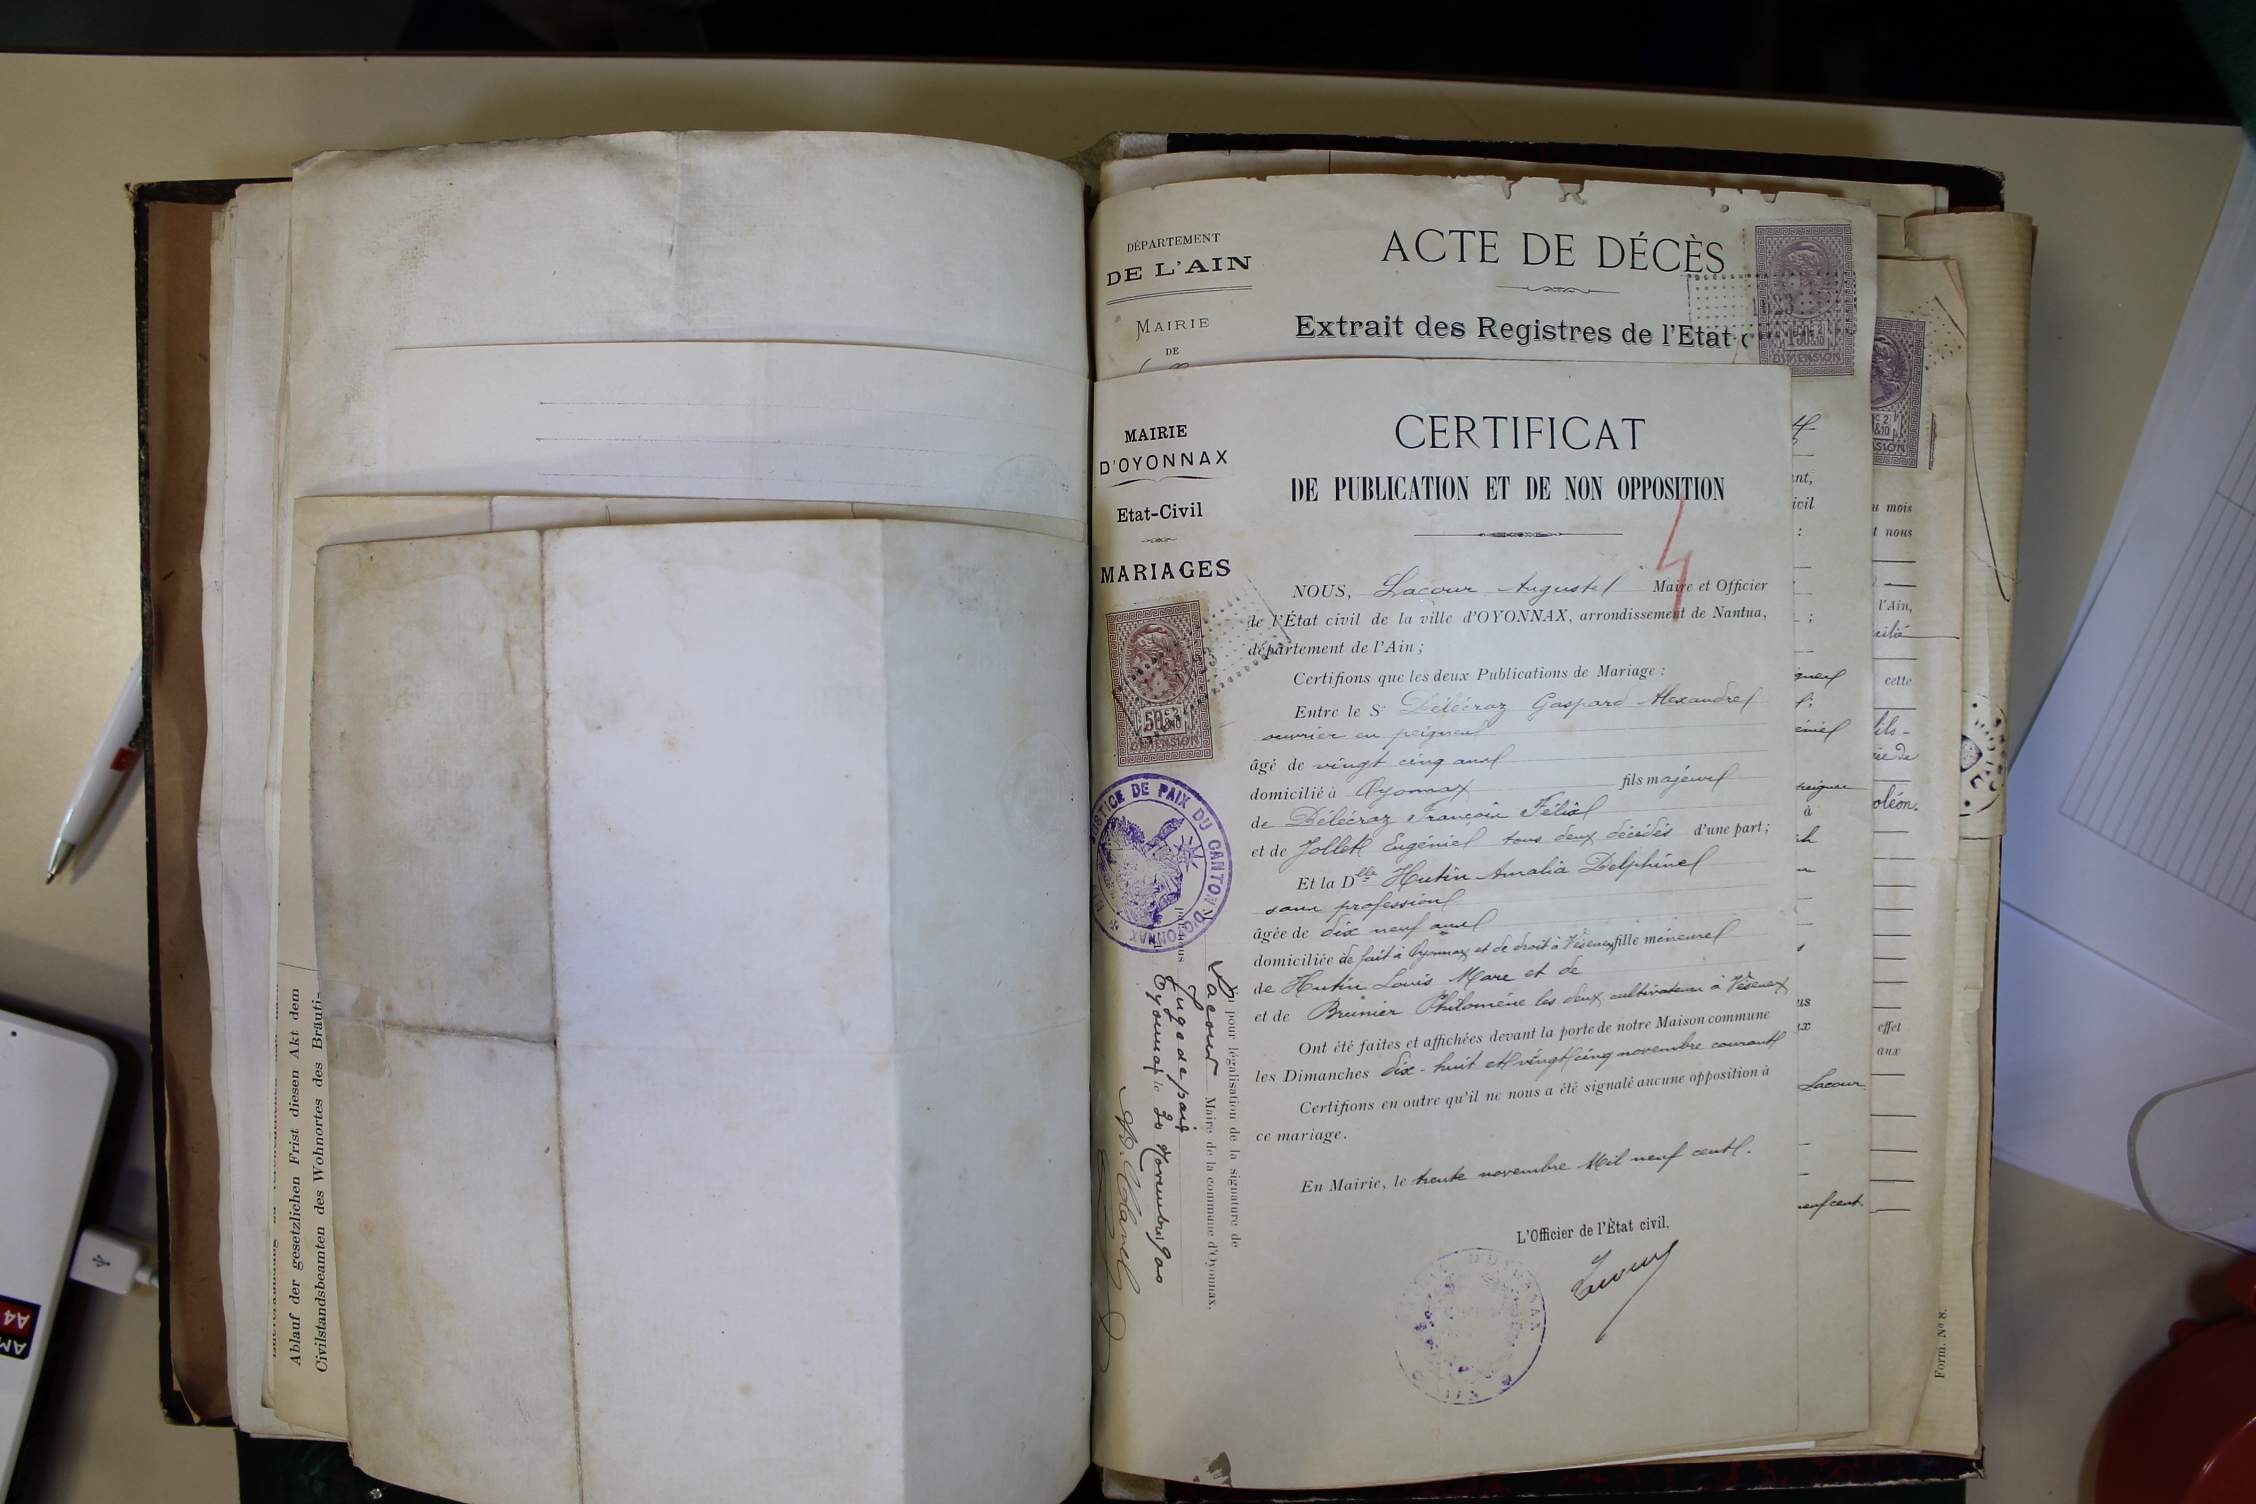 Ablauf der gesetzlichen Frist diesen Akt dem
Civilstandsbeamten des Wohnortes des Bräuti-
DÉPARTEMENT
DE L'AIN
MAIRIE
DE
ACTE DE DÉCÈS
Extrait des Registres de l'Etat c
DIMENSION
MAIRIE
D'OYONNAX
Etat-Civil
MARIAGES
DIMENSION
JUSTICE DE PAIX DU CANTON D'OYONNAX
CERTIFICAT
DE PUBLICATION ET DE NON OPPOSITION
4
NOUS, Lacour Auguste Maire et Officier
de l'État civil de la ville d'OYONNAX, arrondissement de Nantua,
département de l'Ain ;
Certifions que les deux Publications de Mariage :
Entre le Sr Délécraz Gaspard Alexandre
ouvrier en peignes
âgé de vingt cinq ans
domicilié à Oyonnax fils majeur
de Délécraz François Félix
et de Jollet Eugénie tous deux décédés d'une part ;
Et la Dlle Hutin Amalia Delphine
sans profession
âgée de dix neuf ans
domiciliée de fait à Oyonnax et de droit à Vésenex fille mineure
de Hutin Louis Marc et de
et de Brunier Philomène les deux cultivateurs à Vésenex
Ont été faites et affichées devant la porte de notre Maison commune
les Dimanches dix-huit et vingt cinq novembre courant
Certifions en outre qu'il ne nous a été signalé aucune opposition à
ce mariage.
En Mairie, le trente novembre Mil neuf cent.
L'Officier de l'État civil,
Lacour
pour légalisation de la signature de
Lacour Maire de la commune d'Oyonnax,
par nous Juge de paix
Oyonnax le 30 Novembre 1900
nt,
ivil
:
;
à
us
Lacour
neuf cent.
u mois
t nous
l'Ain,
cette
fils-
oléon.
effet
aux
DIMENSION
Form. No 8.
AM
A4